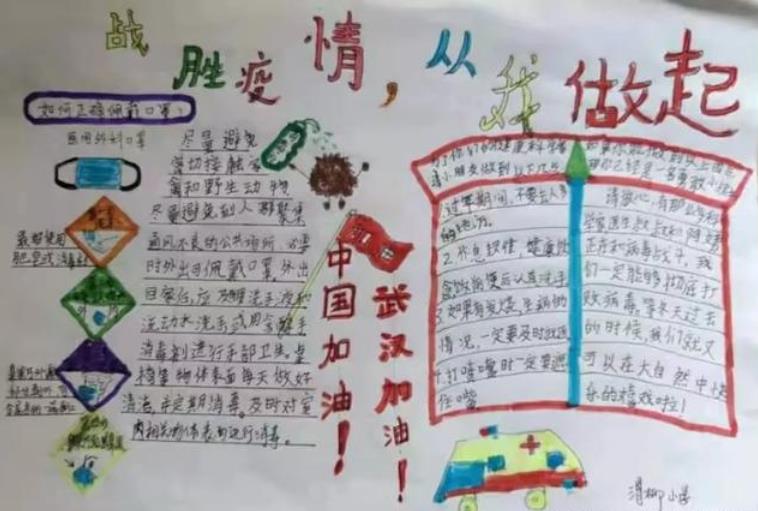 战胜疫情，从我做起
如何正确佩戴口罩：
医用外科口罩
尽量避免
密切接触家
禽和野生动物
尽量避免到人群聚集
通风不良的公共场所，必要
时外出佩戴口罩，外出
目察后，应及时洗手液和
流动水洗手或用含醇手
消毒剂进行手部卫生。桌
椅等物体表面每天做好
清洁，并定期消毒。及时对室
内相关物体表面进行消毒。
中国加油！
武汉加油！
为了你们的健康和生命
请小朋友做到以下几点
1.过年期间，不要去人多
的地方。
2.作息规律，健康饮
食，饭前便后认真洗手
3.如果有发烧、生病的
情况，一定要及时就医
4.打喷嚏时一定要遮
住嘴
如果你能做到以上
请放心，有那么多科
学家医生叔叔和阿姨
正在和病毒战斗。我
们一定能够彻底打
败病毒，等冬天过去
的时候，我们就又
可以在大自然中快
乐的嬉戏啦！
小学